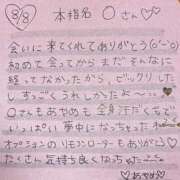 8/8 本指名 〇さん♡♡
会いに来てくれてありがとう(○'ω'○)
初めて会ってからまだそんなに
経ってなかったから、ビックリした
しすっごくうれしかったよ♡
〇さんもあやめも全身汗だくなぐらい
いっぱい夢中になっちゃった
オプションのリモコンローターもありがとう♡
たくさん気持ち良くなっちゃった
♡あやめ♡